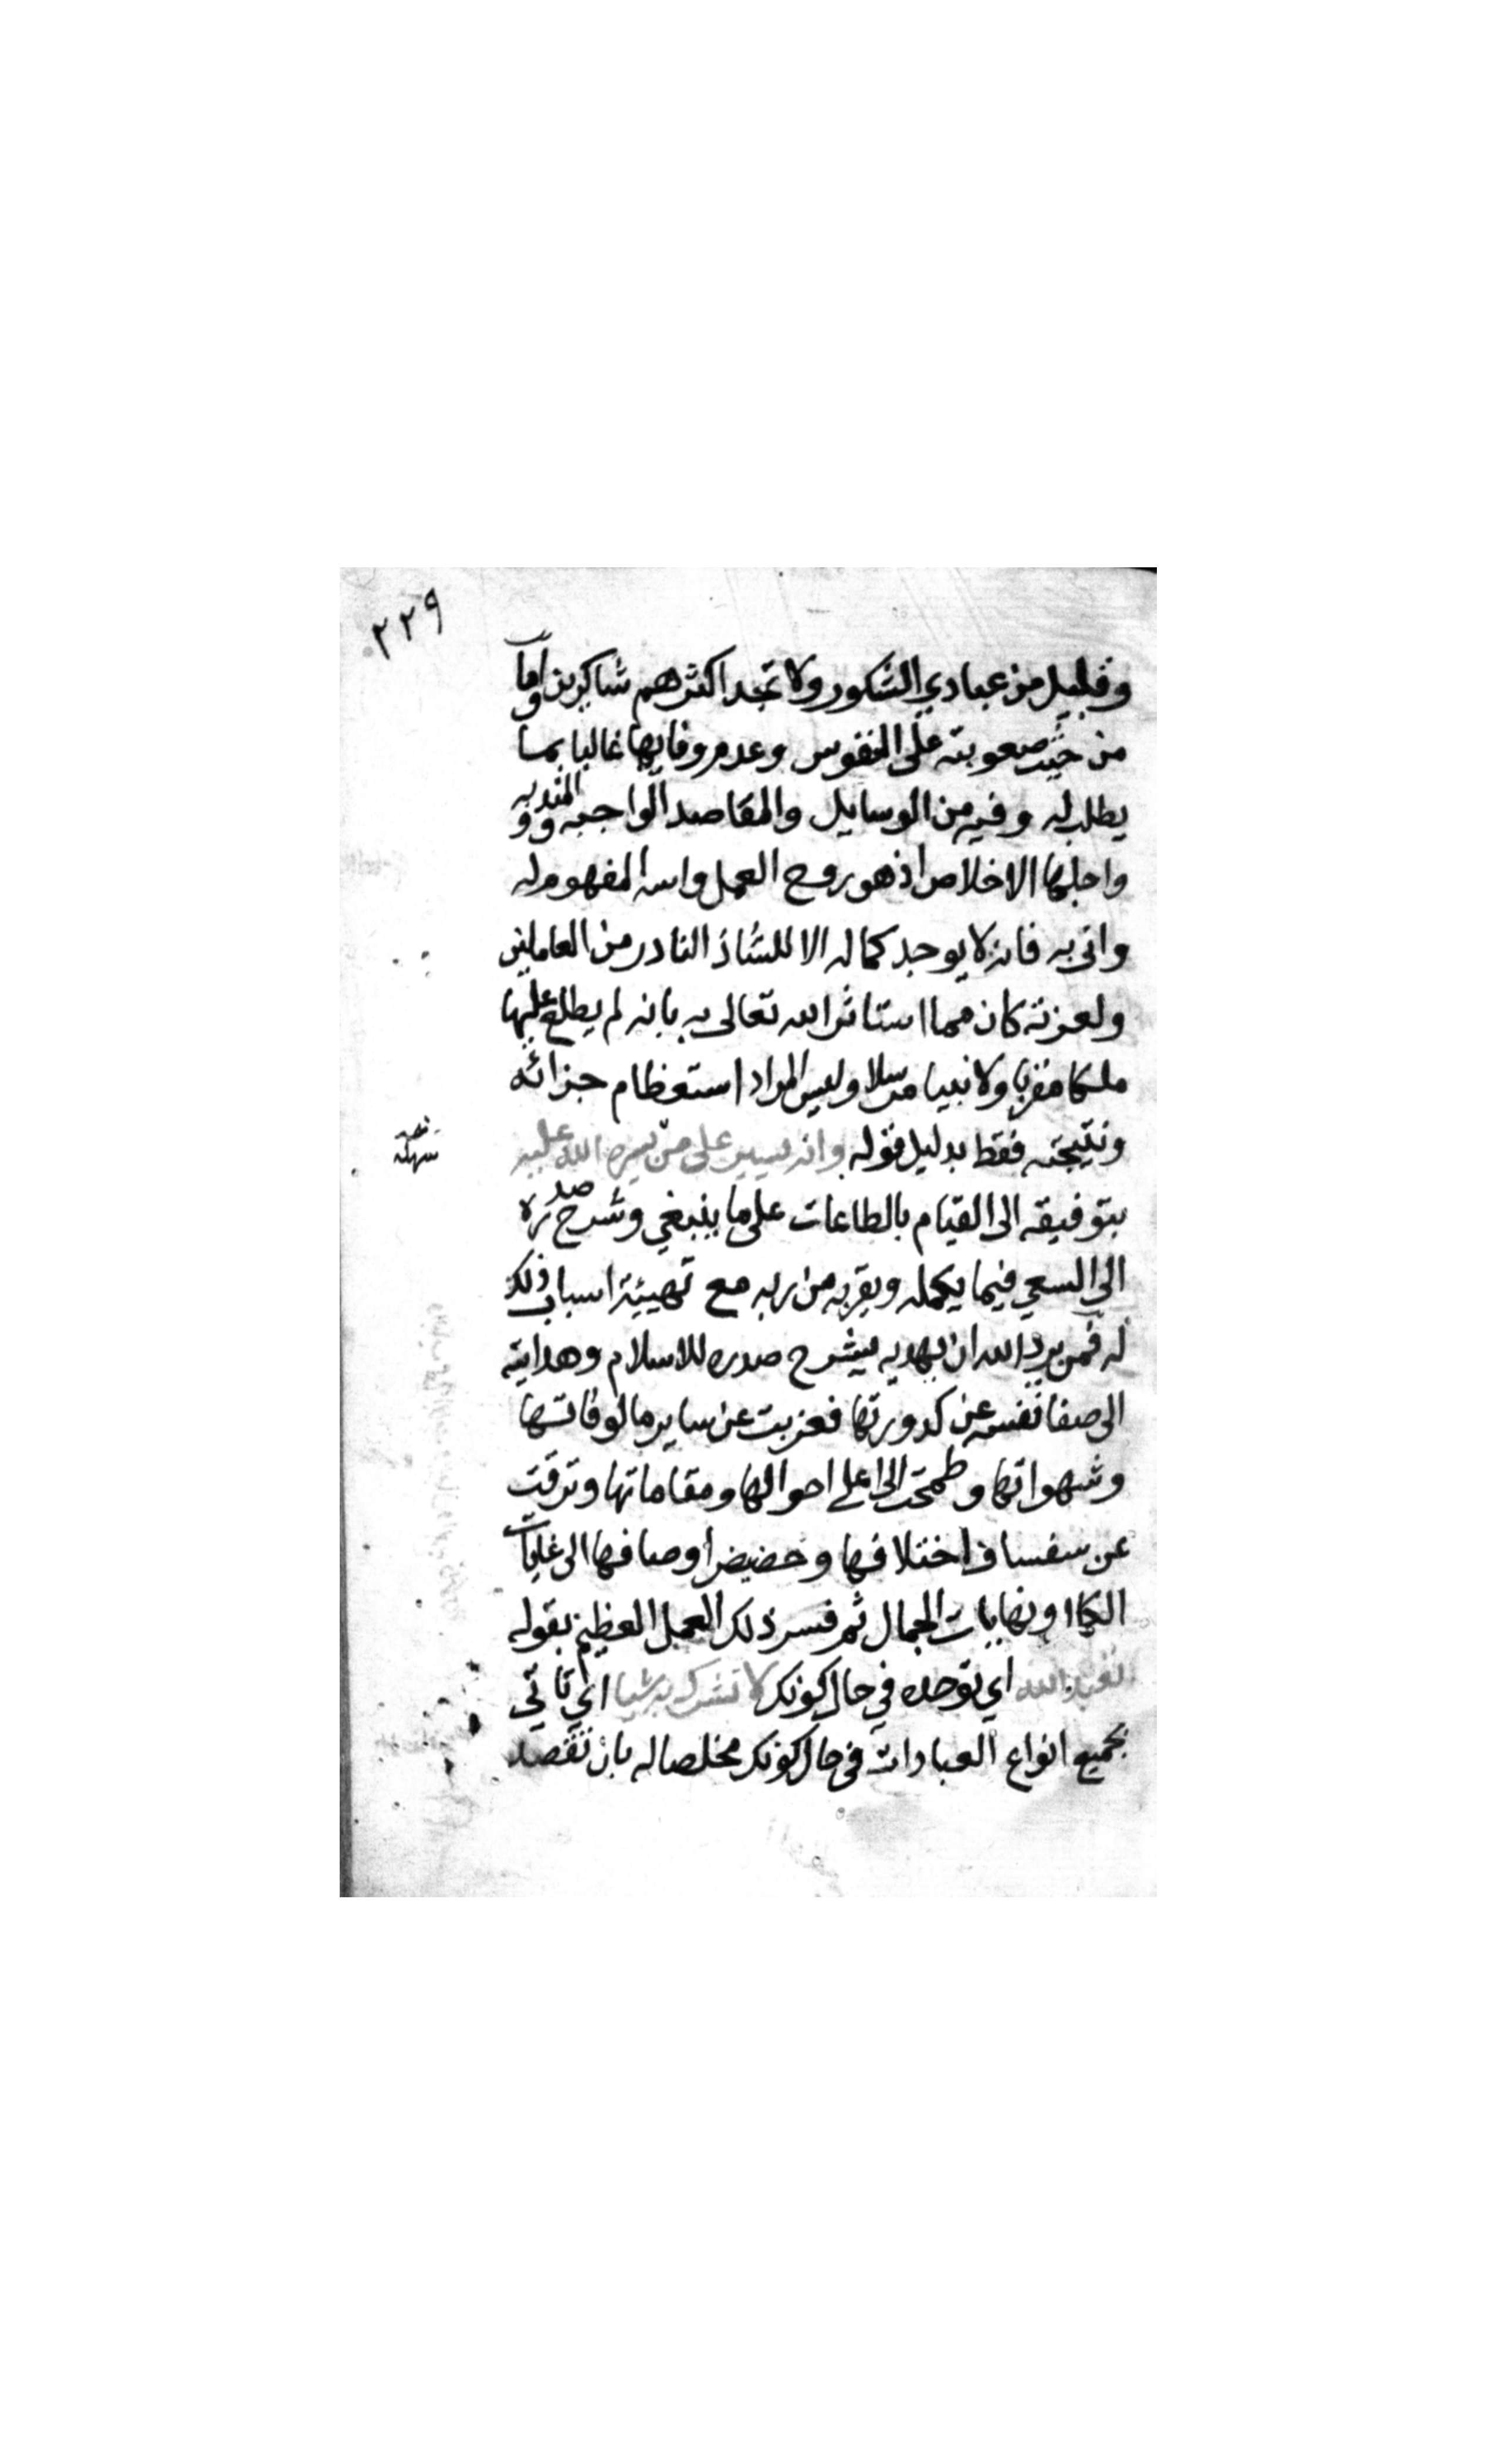 ٢٢٩
وقليل من عبادي الشكور ولا تجد اكثرهم شاكرين واما
من حيث صعوبته على النفوس وعدم وفايها غالبا بما
يطلب له وفيه من الوسايل والمقاصد الواجبه والمندوبه
واجلها الاخلاص اذ هو روح العمل واسه المفهوم له
واتى به فانه لا يوجد كماله الا للشاذ النادر من العاملين
ولعزته كان مما استاثر الله تعالى به بانه لم يطلع عليها
ملكا مقربا ولا نبيا مرسلا وليس المراد استعظام جزائه
ونتيجته فقط بدليل قوله وانه ليسير على من يسره الله عليه
بتوفيقه الى القيام بالطاعات على ما ينبغي وشرح صدره
الى السعي فيما يكمله ويقربه من ربه مع تهيئة اسباب ذلك
له فمن يرد الله ان يهديه يشرح صدره للاسلام وهدايته
الى صفا نفسه عن كدورتها فعزبت عن ساير مالوفاتها
وشهواتها وطمحت الى اعلى احوالها ومقاماتها وترقت
عن سفساف اختلافها وحضيض اوصافها الى غايات
الكمال ونهايات الجمال ثم فسر ذلك العمل العظيم بقوله
تعبد الله اي توحده في حال كونك لا تشرك به شيا اي تاتي
بجميع انواع العبادات في حال كونك مخلصا له بان تقصد